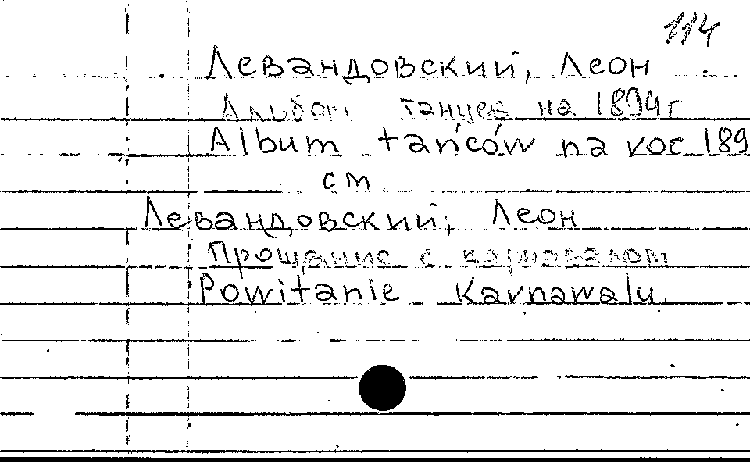 114
Левандовский, Леон
Альбом танцев на 1894 г
Album tańców na roc 189
см
Левандовский, Леон
Прощание с карнавалом
Powitanie Karnawalu